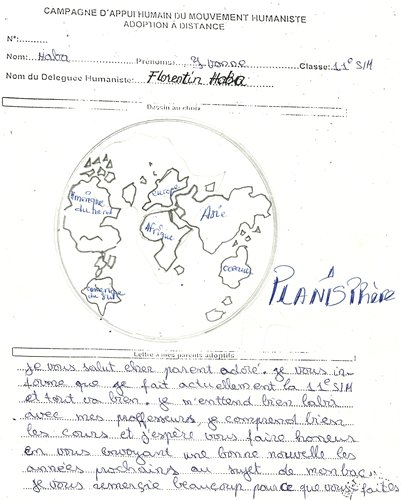 CAMPAGNE D'APPUI HUMAIN DU MOUVEMENT HUMANISTE
ADOPTION A DISTANCE
N°:..........
Nom: Haba Prénoms: Yvonne Classe: 11e SM
Nom du Delegue Humaniste: Florentin Haba
Dessin au choix
Amerique du nord
europe
Asie
Afrique
Amerique du Sud
PLANISPhère
Lettre à mes parents adoptifs
je vous salut cher parent adoré. je vous in-
forme que je fait actuellement la 11e SM
et tout va bien. je m'enttend bien labà
avec mes proffesseurs, je comprend bien
les cours et j'espère vous faire honeur
en vous envoyant une bonne nouvelle les
années prochains au sujet de mon bac.
je vous remergie beaucoup pour ce que vous faites